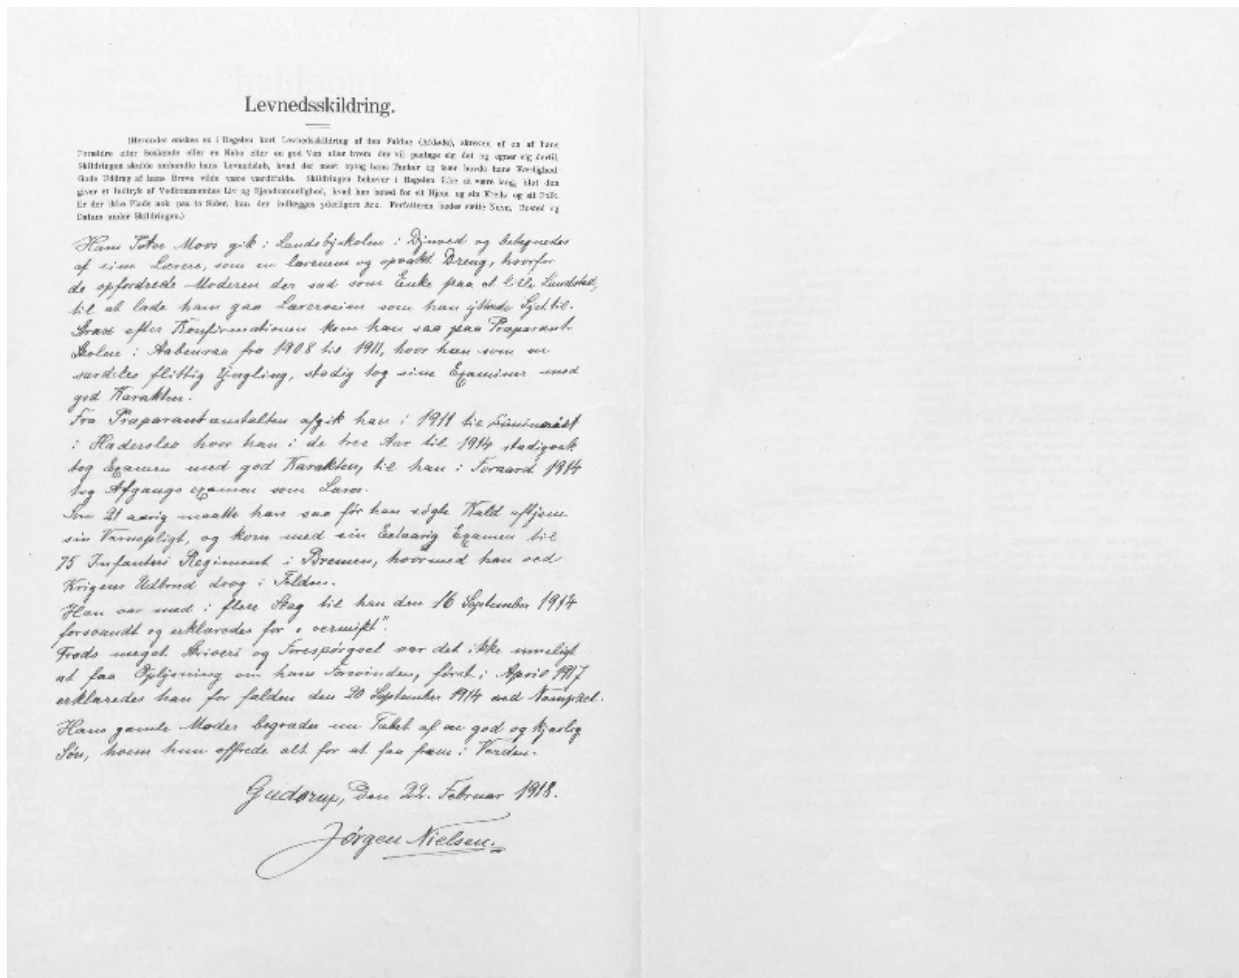 Levnedsskildring.
(Herunder ønskes en i Regelen kort Levnedsskildring af den Faldne (Afdøde), skreven af en af hans
Forældre eller Søskende eller en Nabo eller en god Ven eller hvem der vil paatage sig det og egner sig dertil.
Skildringen skulde omhandle hans Levnedsløb, hvad der mest optog hans Tanker og især havde hans Kærlighed.
Gode Uddrag af hans Breve vilde være værdifulde. Skildringen behøver i Regelen ikke at være lang, blot den
giver et Indtryk af Vedkommendes Liv og Ejendommelighed, hvad han betød for sit Hjem og sin Kreds og sit Folk.
Er der ikke Plads nok paa to Sider, kan der indlægges yderligere Ark. Forfatteren bedes sætte Navn, Bosted og
Datum under Skildringen.)
Hans Peter Moos gik i Landsbyskolen i Djuved og betegnedes
af sine Lærere, som en lærenem og opvakt Dreng, hvorfor
de opfordrede Moderen der sad som Enke paa et lille Landsted,
til at lade ham gaa Lærervejen som han yttrede Lyst til.
Strax efter Konfirmationen kom han saa paa Præparant-
skolen i Aabenraa fra 1908 til 1911, hvor han som en
særdeles flittig Yngling, stadig tog sine Examiner med
god Karakter.
Fra Præparantanstalten afgik han i 1911 til Seminariet
i Haderslev hvor han i de tre Aar til 1914 stadigvæk
tog Examen med god Karakter, til han i Foraaret 1914
tog Afgangsexamen som Lærer.
Som 21 aarig maatte han saa før han søgte Kald aftjene
sin Værnepligt, og kom med sin Eetaarig Examen til
75 Infanteri Regiment i Bremen, hvormed han ved
Krigens Udbrud drog i Felden.
Han var med i flere Slag til han den 16 September 1914
forsvandt og erklæredes for "vermißt".
Trods meget Skriveri og Forespørgsel var det ikke muneligt
at faa Oplysning om hans Forsvinden, først i April 1917
erklæredes han for falden den 20 September 1914 ved
Hans gamle Moder begræder nu Tabet af en god og kjærlig
Søn, hvem hun offrede alt for at faa frem i Verden.
Guderup, Den 22. Februar 1918.
Jørgen Nielsen.